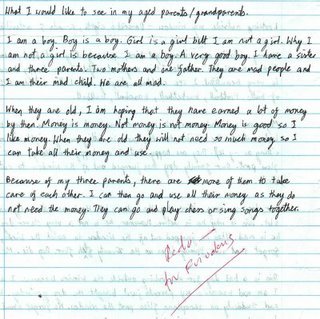 What I would like to see in my aged parents/grandparents.
I am a boy. Boy is a boy. Girl is a girl but I am not a girl. Why I
am not a girl is because I am a boy. A very good boy. I have a sister
and three parents. Two mothers and one father. They are mad people and
I am their mad child. We are all mad.
When they are old, I am hoping that they have earned a lot of money
by then. Money is money. Not money is not money. Money is good so I
like money. When they are old they will not need so much money, so I
can take all their money and use.
Because of my three parents, there are more of them to take
care of each other. I can then go and use all their money as they do
not need the money. They can go and play chess or sing songs together.
Redo